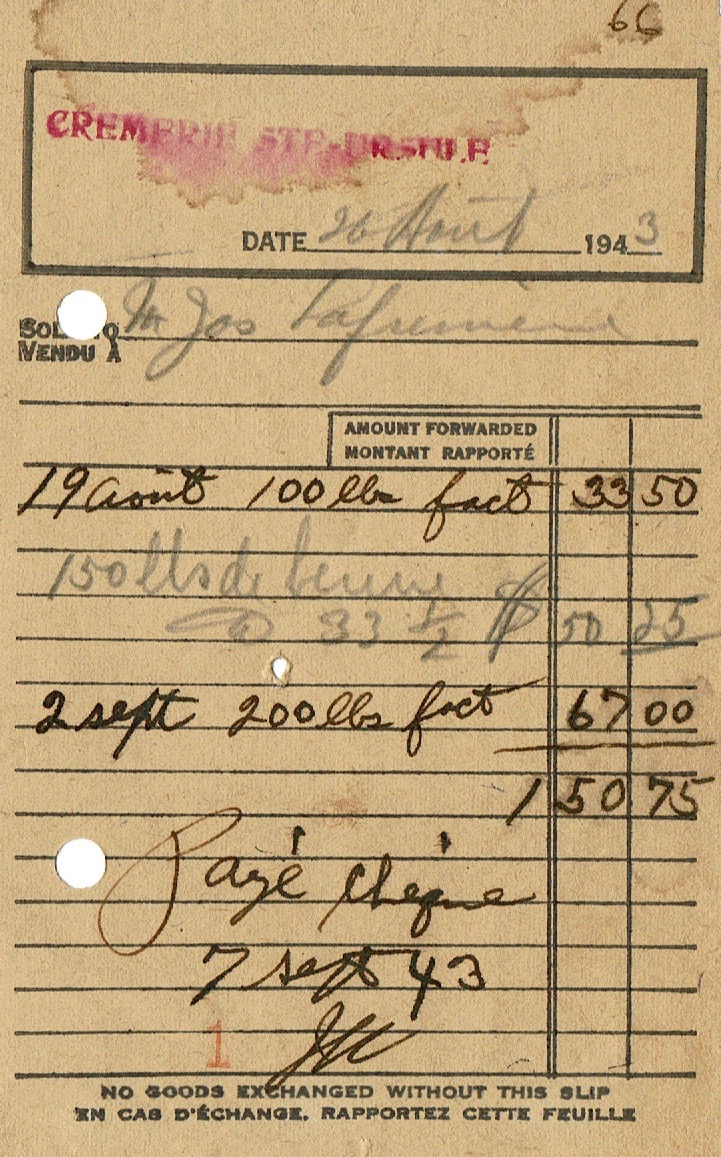 66
CRÈMERIE STE-URSULE
DATE 26 Août 1943
SOLD TO M Jos Lafrenière
VENDU À
AMOUNT FORWARDED
MONTANT RAPPORTÉ
19 août 100 lbs fact 33 50
150 lbs de beurre
@ 33 1/2 $ 50 25
2 sept 200 lbs fact 67 00
150 75
Payé chèque
7 sept 43
1
NO GOODS EXCHANGED WITHOUT THIS SLIP
EN CAS D'ÉCHANGE, RAPPORTEZ CETTE FEUILLE